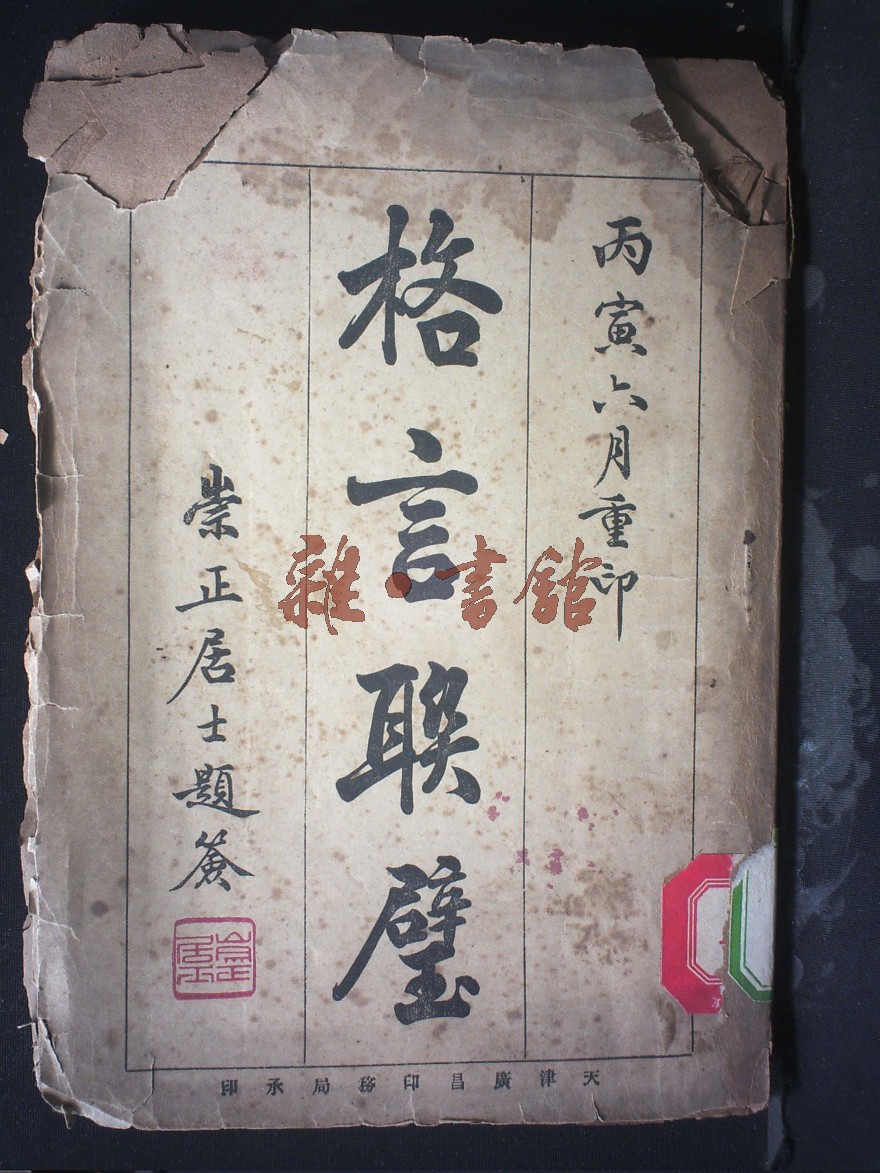 丙寅六月重印
格言聯璧
崇正居士題簽
崇正居士
天津廣昌印務局承印
雜·書館